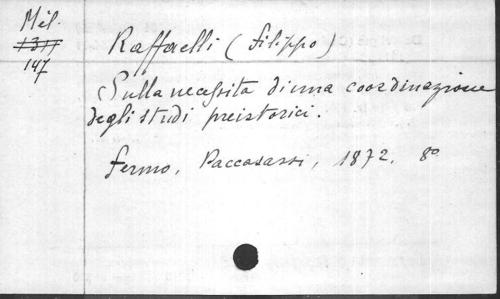 Mil.
1311
147
Raffaelli (Filippo)
Sulla necessita di una coordinazione
degli studi preistorici.
Fermo, Paccasassi, 1872, 8º